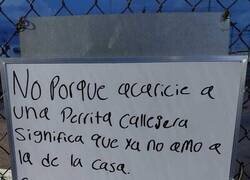 No Porque acaricie a
una Perrita callejera
Significa que ya no amo a
la de la casa.